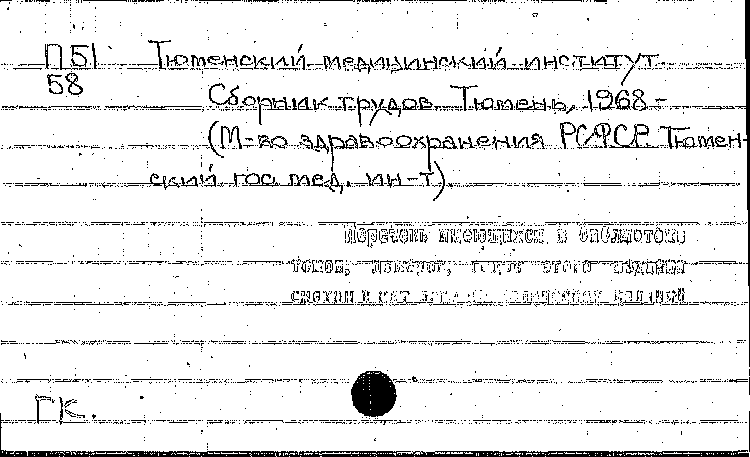 П51 Тюменский медицинский институт.
58
Сборник трудов. Тюмень, 1968 -
(М-во здравоохранения РСФСР. Тюмен-
ский гос. мед. ин-т).
Перечень имеющихся в библиотеке
томов, этого издания
смотри в
ГК.